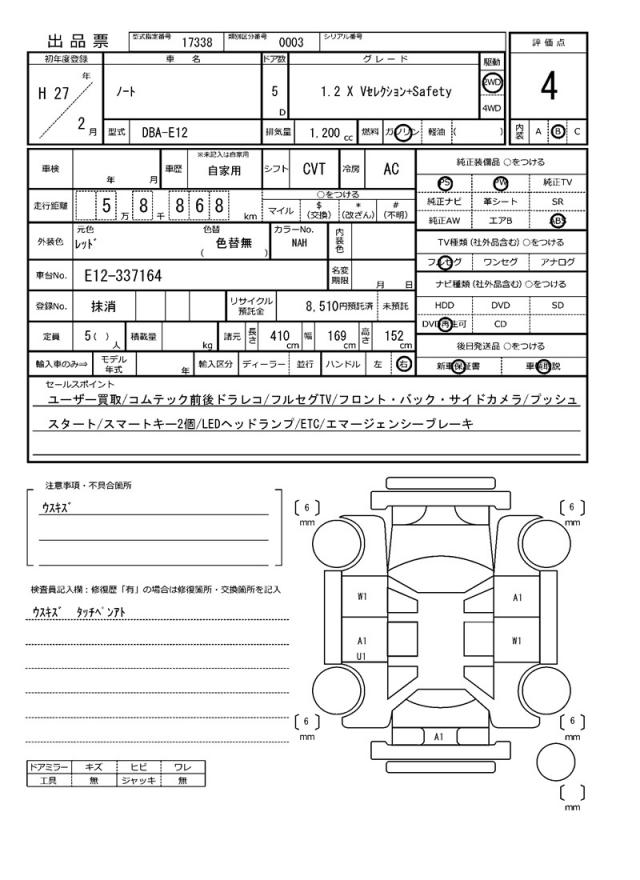 出品票 型式指定番号 17338 類別区分番号 0003 シリアル番号
評価点
4
内装 A B C
初年度登録 車名 ドア数 グレード 駆動
H 27 年 2 月 ノート 5 D 1.2 X Vセレクション+Safety 2WD 4WD
型式 DBA-E12 排気量 1.200 cc 燃料 ガソリン 軽油 ( )
車検 年 月 車歴 ※未記入は自家用 自家用 シフト CVT 冷房 AC
走行距離 5 万 8 千 8 6 8 km ○をつける
マイル $(交換) *(改ざん) #(不明)
外装色 元色 レッド 色替 色替無 ( ) カラーNo. NAH 内装色
車台No. E12-337164 名変期限 月 日
登録No. 抹消 リサイクル預託金 8,510円預託済 未預託
定員 5( )人 積載量 kg 諸元 長さ 410 cm 幅 169 cm 高さ 152 cm
輸入車のみ⇨ モデル年式 年 輸入区分 ディーラー 並行 ハンドル 左 右
純正装備品 ○をつける
PS PW 純正TV
純正ナビ 革シート SR
純正AW エアB ABS
TV種類(社外品含む)○をつける
フルセグ ワンセグ アナログ
ナビ種類(社外品含む)○をつける
HDD DVD SD
DVD再生可 CD
後日発送品 ○をつける
新車保証書 車輌取説
セールスポイント
ユーザー買取/コムテック前後ドラレコ/フルセグTV/フロント・バック・サイドカメラ/プッシュ
スタート/スマートキー2個/LEDヘッドランプ/ETC/エマージェンシーブレーキ
注意事項・不具合箇所
ウスキズ
検査員記入欄：修復歴「有」の場合は修復箇所・交換箇所を記入
ウスキズ タッチペンアト
ドアミラー キズ ヒビ ワレ
工具 無 ジャッキ 無
[ 6 ] mm [ 6 ] mm
W1 A1
A1 W1
U1
[ 6 ] mm [ 6 ] mm
A1
[ ] mm